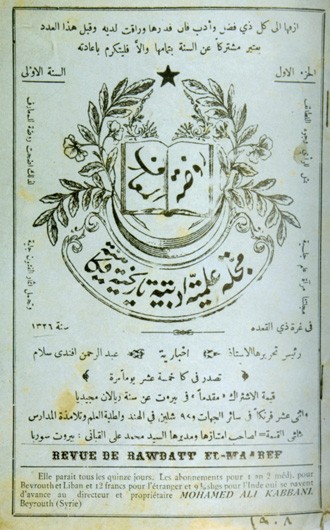 ازفها الى كل ذي فضل وأدب فان قدرها وراقت لديه وقبل هذا العدد
يعتبر مشتركاً عن السنة بتمامها والاّ فليتكرم باعادته
الجزء الاول
السنة الاولى
روضة المعارف
مجلة علمية ادبية تاريخية فكاهية
في غرة ذي القعده
سنة ١٣٢٦
رئيس تحريرها الاستاذ
اخبارية
عبد الرحمن افندي سلام
تصدر في كل خمسة عشر يوماً مرة
قيمة الاشتراك مقدماً في بيروت عن سنة ريالان مجيديا
واثني عشر فرنكاً في سائر الجهات و٩٦ شلين في الهند ولطلبة العلم وتلامذة المدارس
القيمة لصاحب امتيازها ومديرها السيد محمد علي القباني : بيروت سوريا
REVUE DE RAWDATT EL-MAAREF
Elle parait tous les quinze jours. Les abonnements pour 1 an 2 médj. pour
Beyrouth et Liban et 12 francs pour l'étranger et 9 ½ shgs pour l'Inde qui se versent
d'avance au directeur et propriétaire MOHAMED ALI KABBANI.
Beyrouth (Syrie)
١٩٠٨